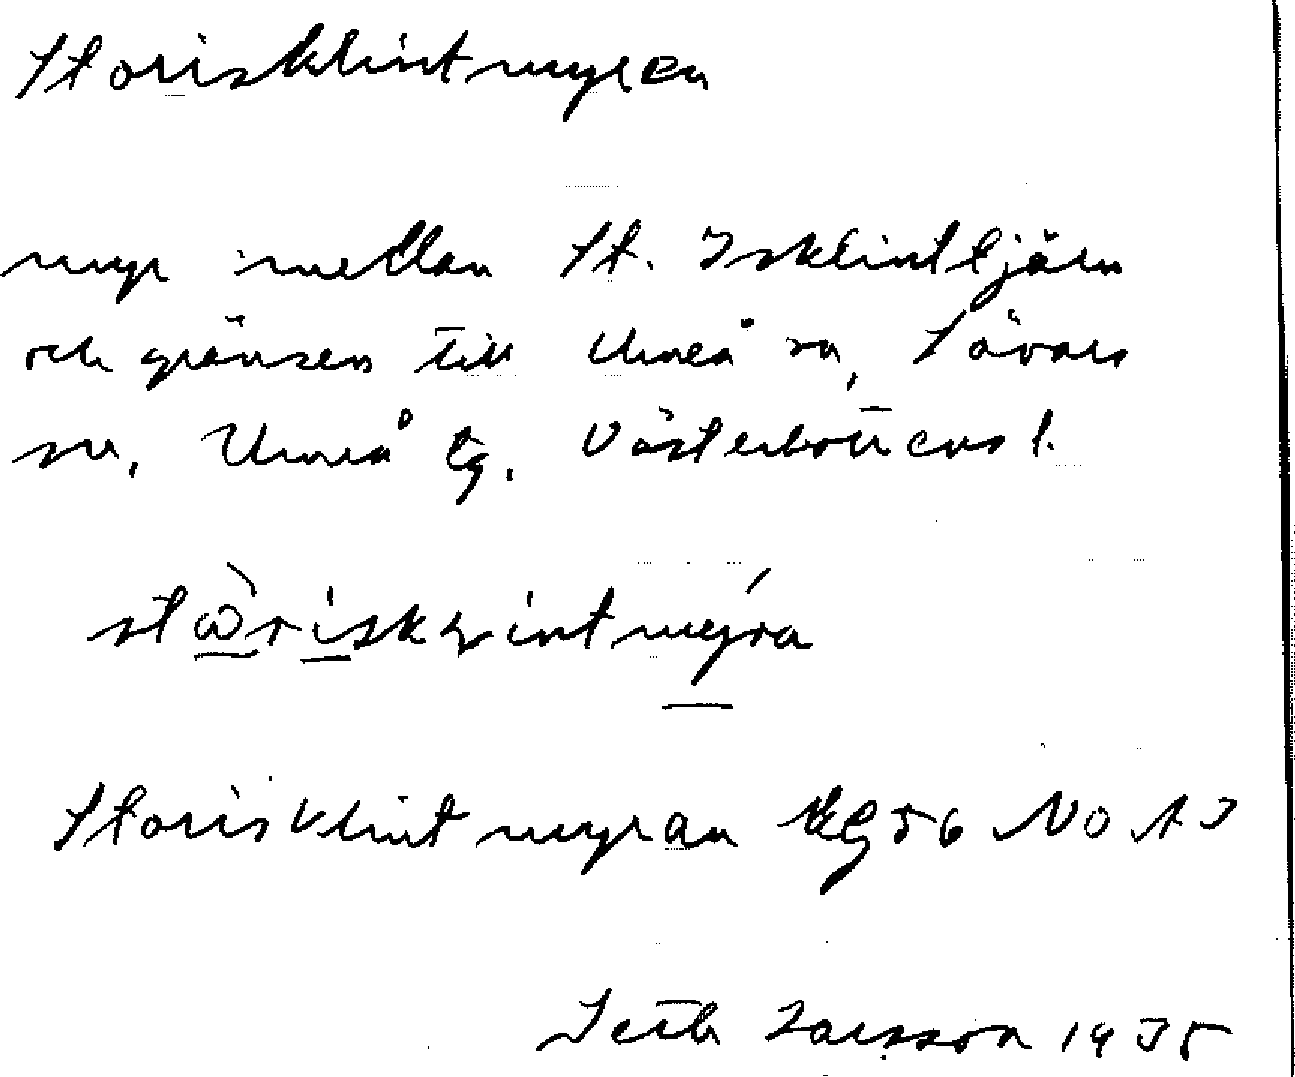 Storisklintmyren
myr mellan St. Isklinttjärn
och gränsen till Umeå sn, Sävars
sn, Umeå tg. Västerbottens l.
Storisklintmyran kg 56 NO
Seth Larsson 1935